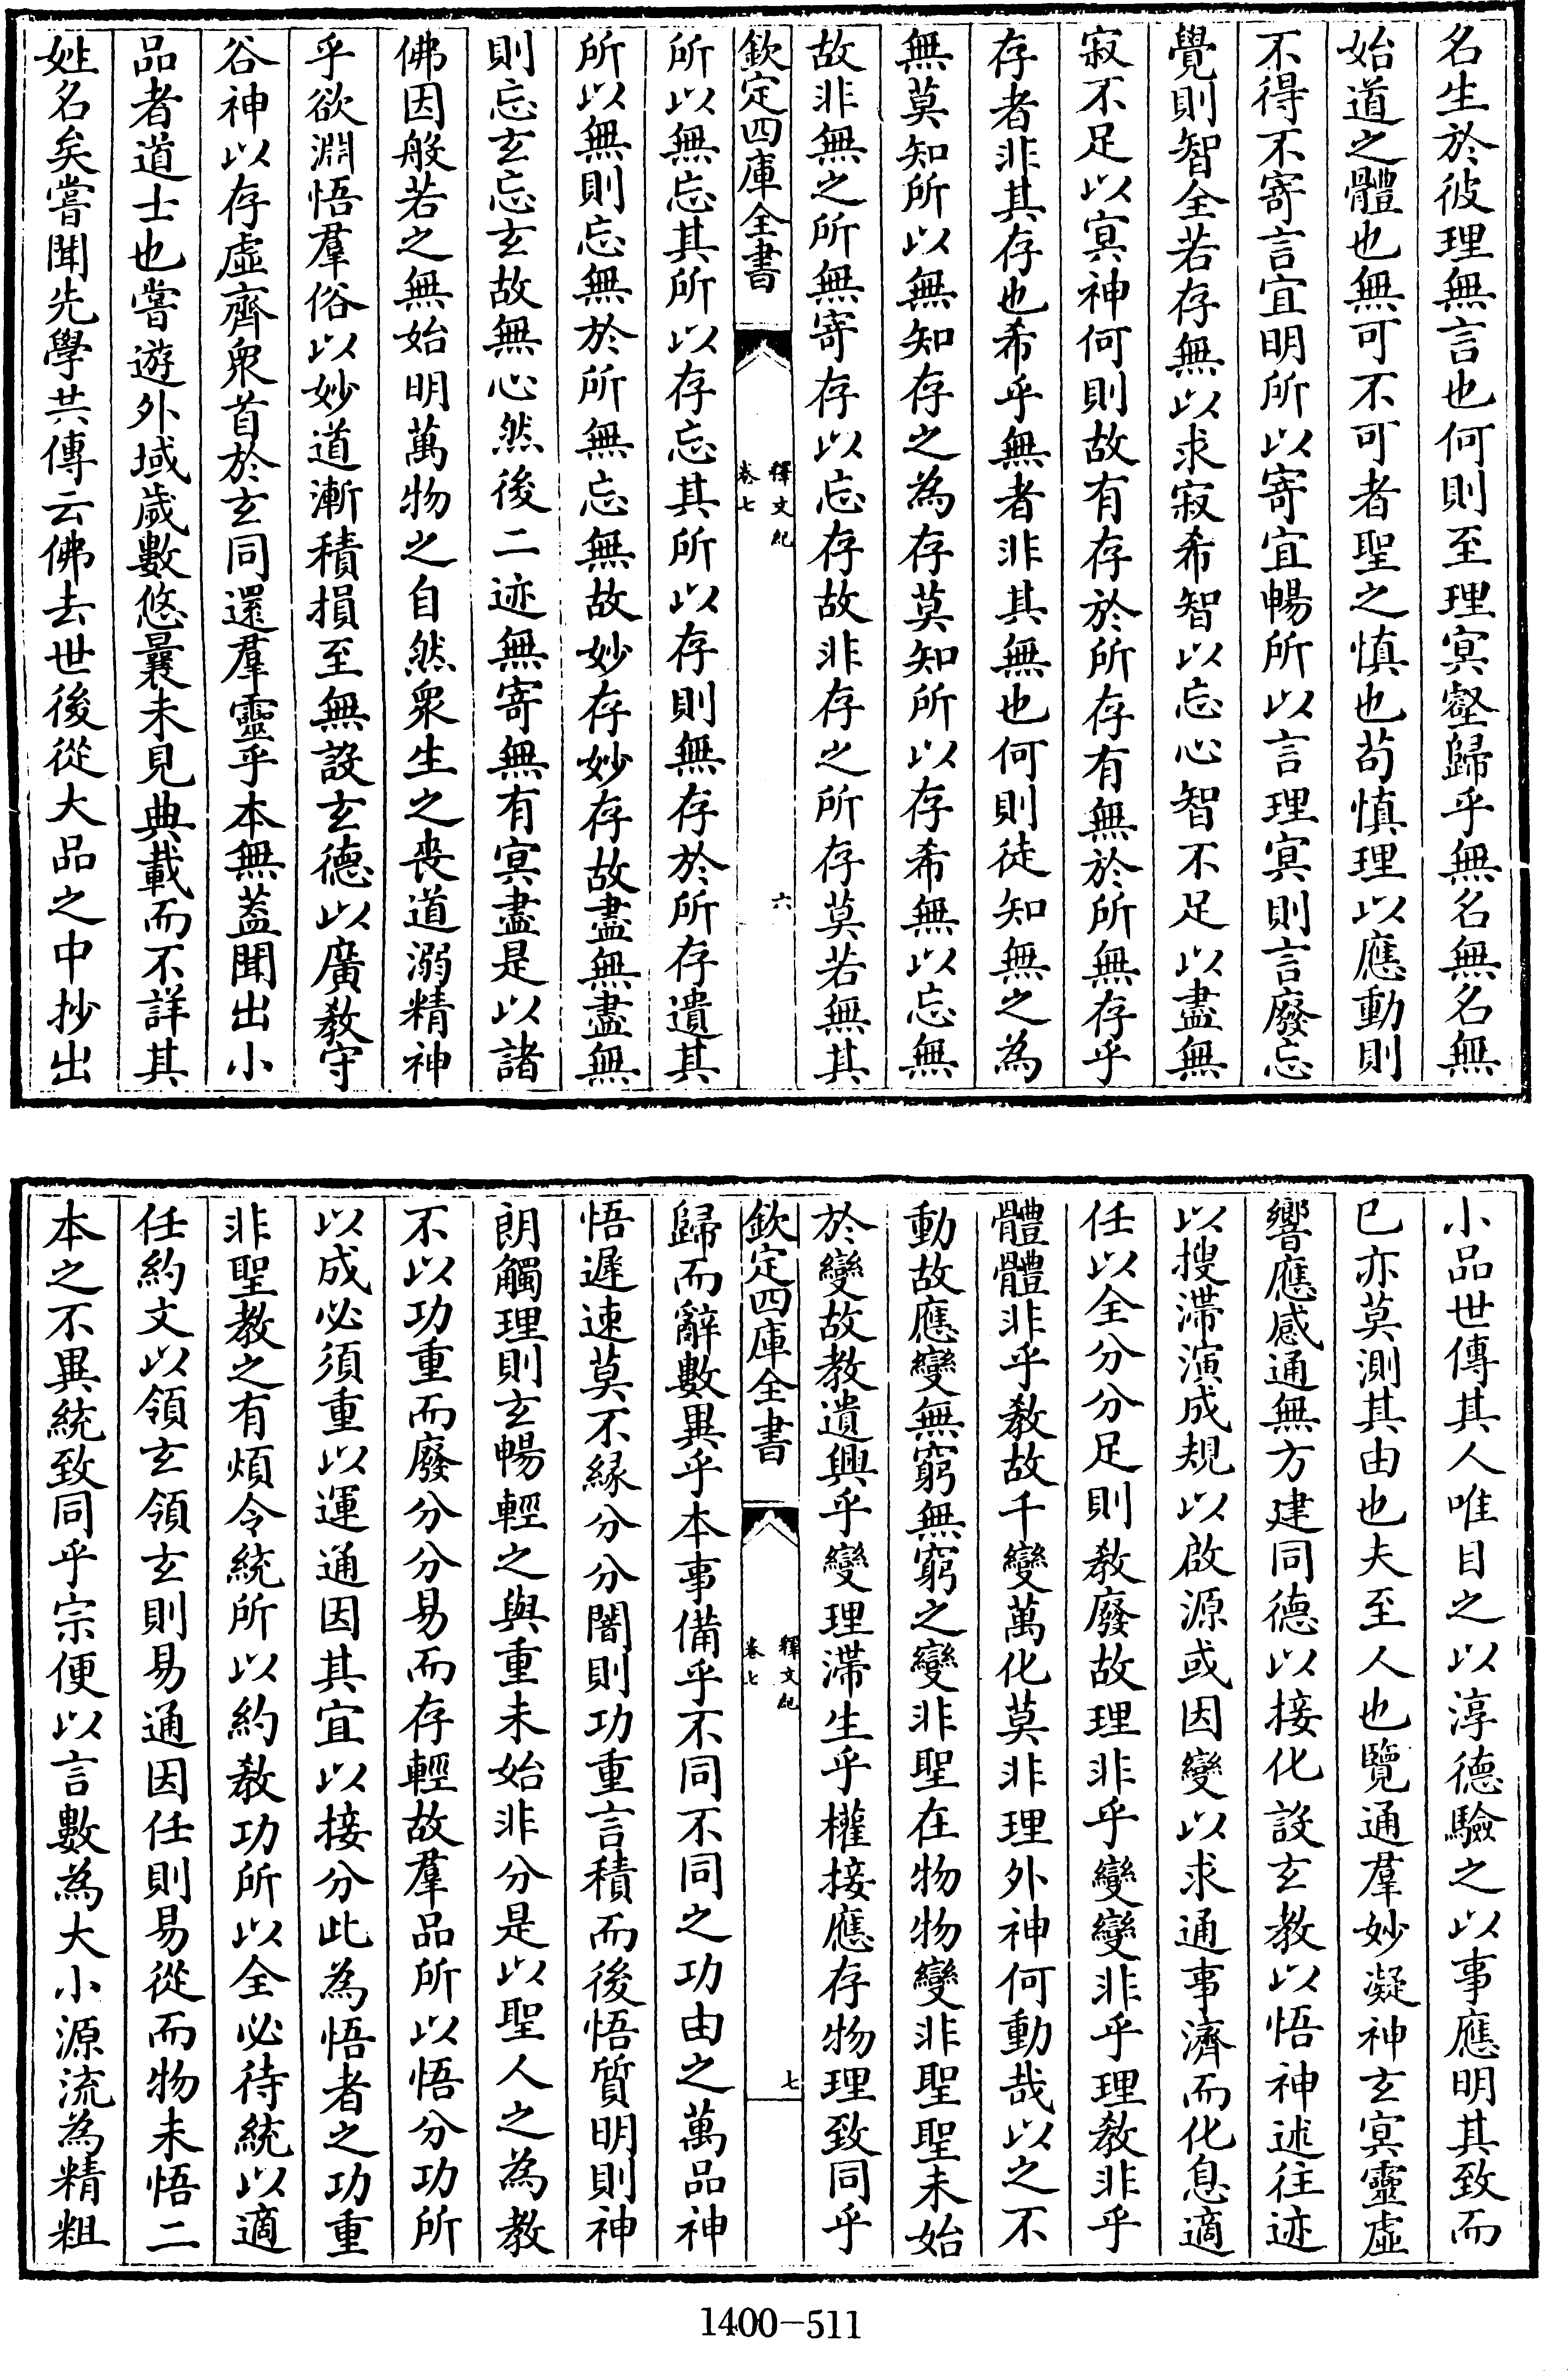 名生於彼理無言也何則至理冥壑歸乎無名無名無
始道之體也無可不可者聖之慎也茍慎理以應動則
不得不寄言宜明所以寄宜暢所以言理冥則言廢忘
覺則智全若存無以求寂希智以忘心智不足以盡無
寂不足以冥神何則故有存於所存有無於所無存乎
存者非其存也希乎無者非其無也何則徒知無之為
無莫知所以無知存之為存莫知所以存希無以忘無
故非無之所無寄存以忘存故非存之所存莫若無其
欽定四庫全書
釋文紀
卷七
六
所以無忘其所以存忘其所以存則無存於所存遺其
所以無則忘無於所無忘無故妙存妙存故盡無盡無
則忘玄忘玄故無心然後二迹無寄無有冥盡是以諸
佛因般若之無始明萬物之自然衆生之喪道溺精神
乎欲淵悟羣俗以妙道漸積損至無設玄德以廣教守
谷神以存虛齊衆首於玄同還羣靈乎本無蓋聞出小
品者道士也嘗遊外域歲數悠曩未見典載而不詳其
姓名矣嘗聞先學共傳云佛去世後從大品之中抄出
小品世傳其人唯目之以淳德驗之以事應明其致而
已亦莫測其由也夫至人也覽通羣妙凝神玄冥靈虛
響應感通無方建同德以接化設玄教以悟神述往迹
以搜滯演成規以啟源或因變以求通事濟而化息適
任以全分分足則教廢故理非乎變變非乎理教非乎
體體非乎教故千變萬化莫非理外神何動哉以之不
動故應變無窮無窮之變非聖在物物變非聖聖未始
於變故教遺興乎變理滯生乎權接應存物理致同乎
欽定四庫全書
釋文紀
卷七
七
歸而辭數異乎本事備乎不同不同之功由之萬品神
悟遲速莫不緣分分闇則功重言積而後悟質明則神
朗觸理則玄暢輕之與重未始非分是以聖人之為教
不以功重而廢分分易而存輕故羣品所以悟分功所
以成必須重以運通因其宜以接分此為悟者之功重
非聖教之有煩令統所以約教功所以全必待統以適
任約文以領玄領玄則易通因任則易從而物未悟二
本之不異統致同乎宗便以言數為大小源流為精粗
1400-511